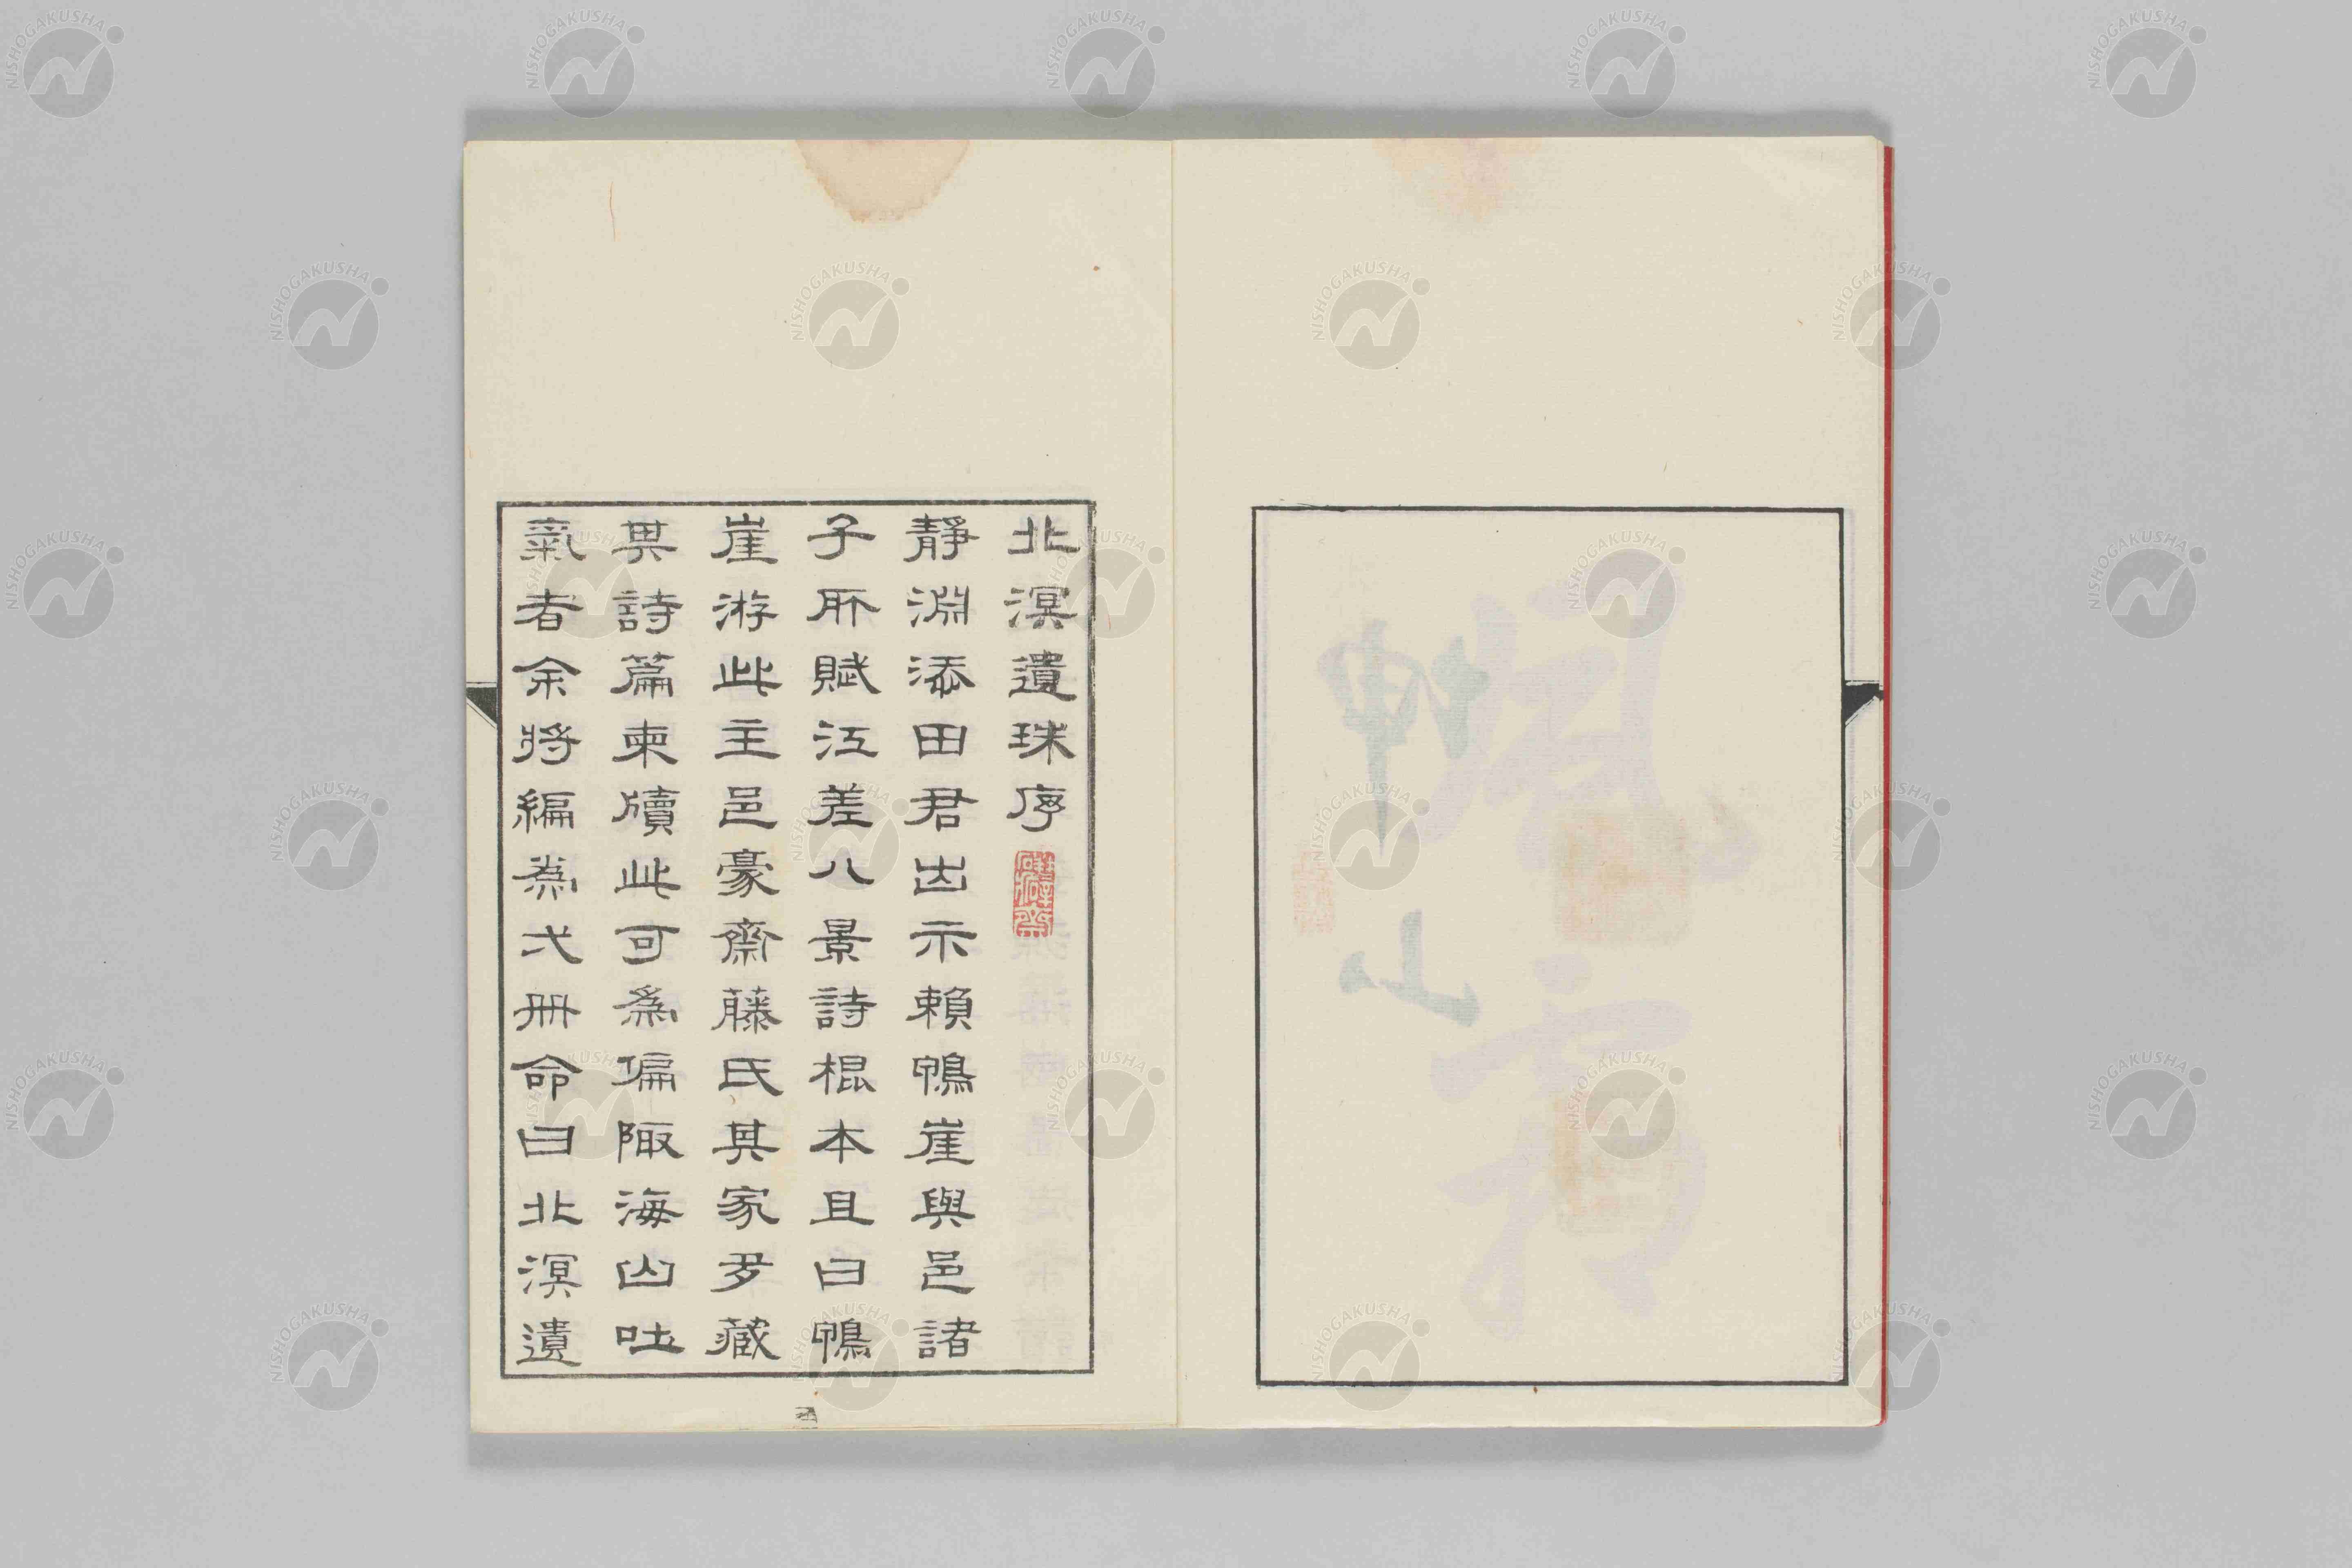 北溟遺珠序
靜淵添田君出示賴鴨崖與邑諸
子所賦江差八景詩棍本且曰鴨
崖游此主邑豪齋藤氏其家多藏
其詩篇柬牘此可為偏陬海山吐
氣者余將編為弌冊命曰北溟遺
NISHOGAKUSHA